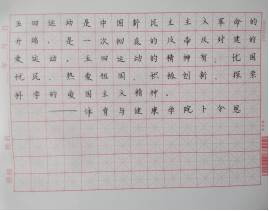 五四运动是中国新民主主义革命的
开端，是一次彻底的反帝反封建的
爱国运动，五四运动的精神有：忧国
忧民、热爱祖国、积极创新、探索
科学的爱国主义精神。
——体育与健康学院卜令恩